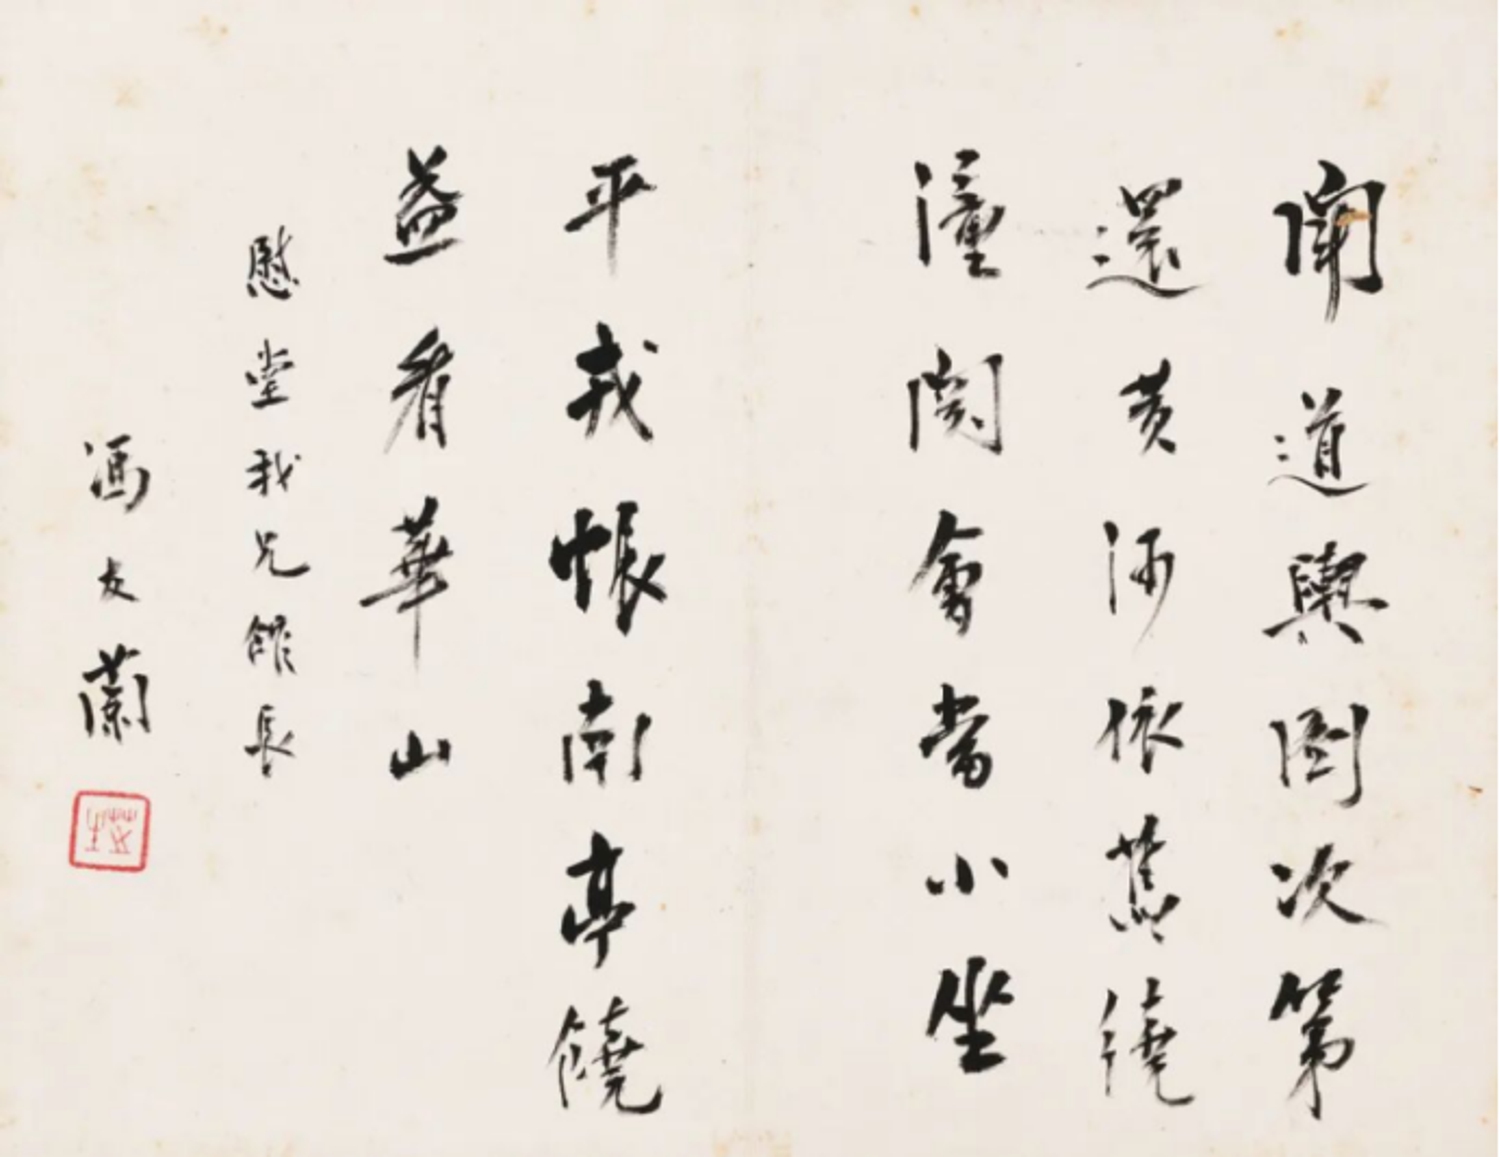 聞道輿圖次第
還黃河依舊繞
潼関會當小坐
平戎帳南亭饒
益看華山
慰堂我兄館長
馮友蘭